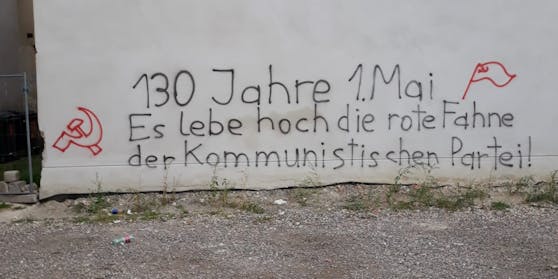 130 Jahre 1. Mai
Es lebe hoch die rote Fahne
der Kommunistischen Partei!